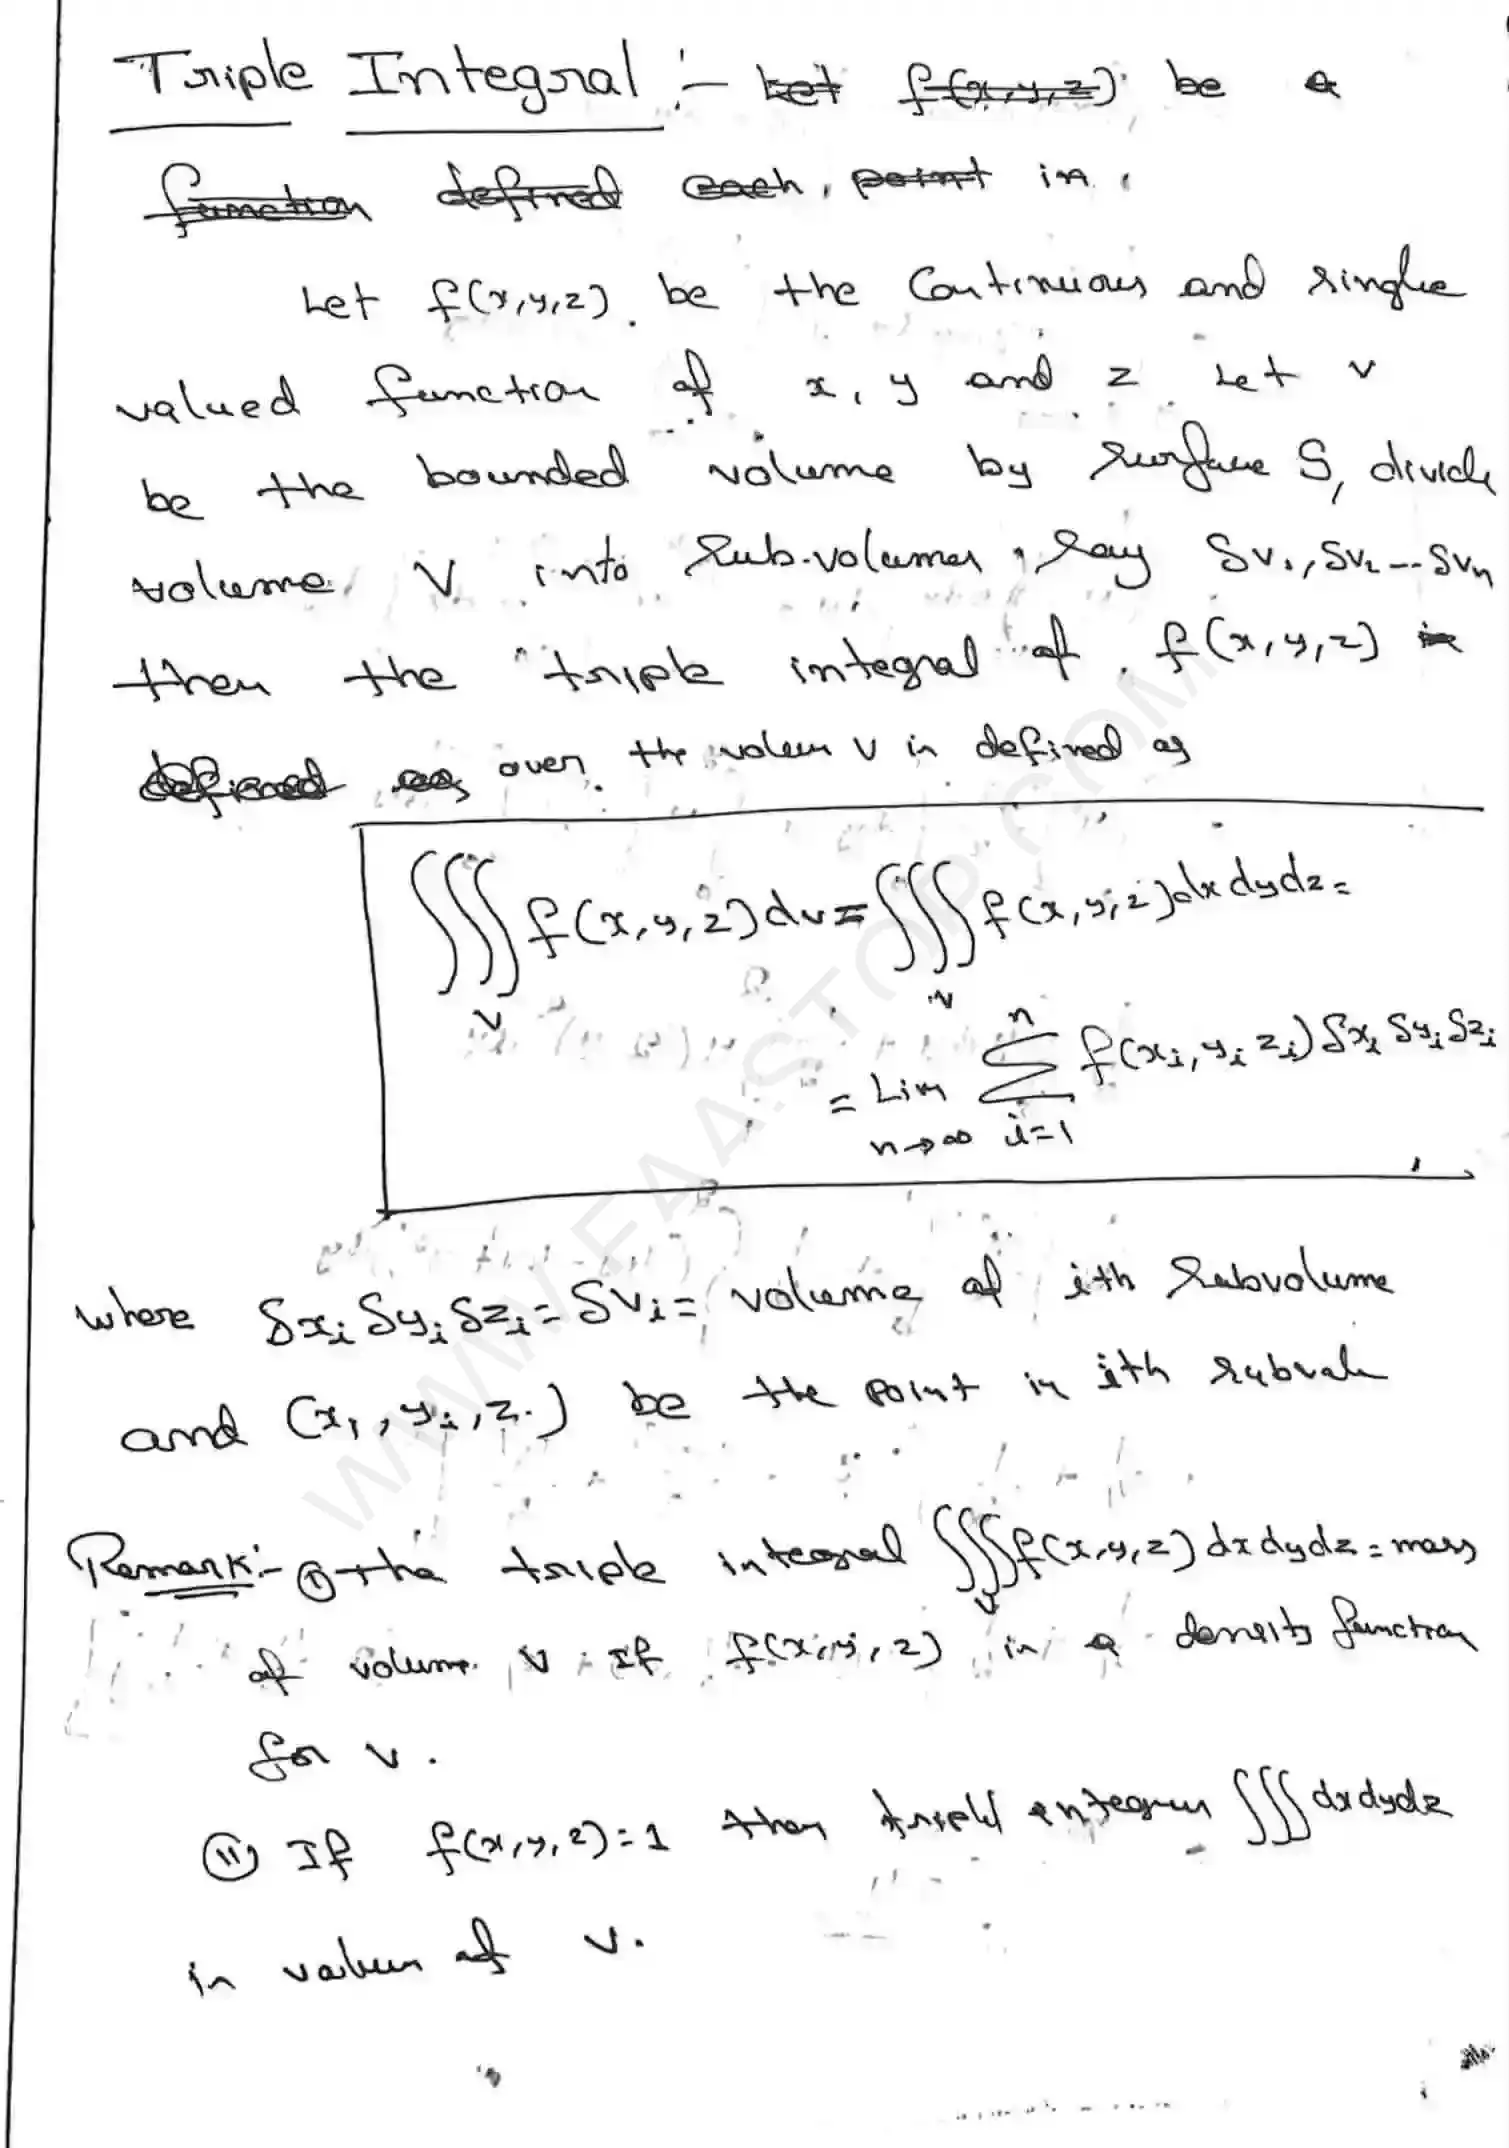 Triple Integral :- Let f(x,y,z) be a
function defined each point in
Let f(x,y,z) be the Continuous and single
valued function of x, y and z. Let V
be the bounded volume by surface S, divide
volume V into sub-volumes, say δv₁, δv₂ -- δvₙ
then the triple integral of f(x,y,z) is
defined as over the volum V is defined as
∭_V f(x,y,z)dv = ∭_V f(x,y,z)dxdydz =
= Lim_{n→∞} Σ_{i=1}^{n} f(xᵢ, yᵢ zᵢ) δxᵢ δyᵢ δzᵢ
where δxᵢ δyᵢ δzᵢ = δvᵢ = volume of ith subvolume
and (x₁, yᵢ, z.) be the point in ith subvolu
Remark:- ① the triple integral ∭_V f(x,y,z) dxdydz = mass
of volume V. If f(x,y,z) is a density function
for V.
⑪ If f(x,y,z)=1 then triple integral ∭ dxdydz
is volum of V.
WWW.FAASTOP.COM